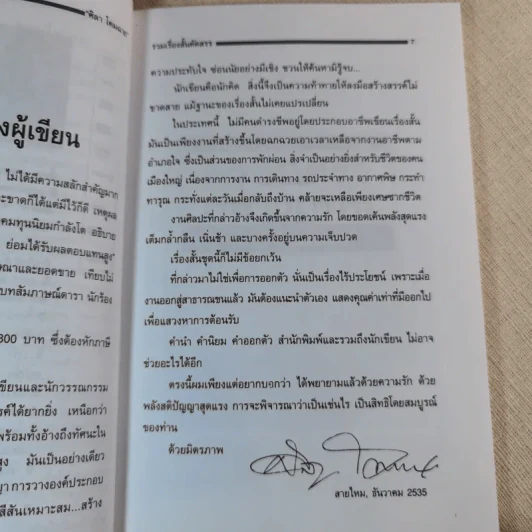 "ศิลา โคมฉาย"
งผู้เขียน
ไม่ได้มีความสลักสำคัญมาก
ะขาดก็ได้แต่มีไว้ก็ดี เหตุผล
คมทุนนิยมกำลังโต อธิบาย
ย่อมได้รับผลตอบแทนสูง"
ษณาและยอดขาย เทียบไม่
บทสัมภาษณ์ดารา นักร้อง
300 บาท ซึ่งต้องหักภาษี
ขียนและนักวรรณกรรม
รค์ได้ยากยิ่ง เหนือกว่า
พร้อมทั้งอ้างถึงทัศนะใน
สูง มันเป็นอย่างเดียว
ญา การวางองค์ประกอบ
สีสันเหมาะสม...สร้าง
รวมเรื่องสั้นคัดสรร 7
ความประทับใจ ซ่อนนัยอย่างมีเชิง ชวนให้ค้นหามิรู้จบ...
นักเขียนคือนักคิด สิ่งนี้จึงเป็นความท้าทายให้ลงมือสร้างสรรค์ไม่
ขาดสาย แม้ฐานะของเรื่องสั้นไม่เคยแปรเปลี่ยน
ในประเทศนี้ ไม่มีคนดำรงชีพอยู่โดยประกอบอาชีพเขียนเรื่องสั้น
มันเป็นเพียงงานที่สร้างขึ้นโดยฉกฉวยเอาเวลาเหลือจากงานอาชีพตาม
อำเภอใจ ซึ่งเป็นส่วนของการพักผ่อน สิ่งจำเป็นอย่างยิ่งสำหรับชีวิตของคน
เมืองใหญ่ เนื่องจากการงาน การเดินทาง รถประจำทาง อากาศพิษ กระทำ
ทารุณ กระทั่งแต่ละวันเมื่อกลับถึงบ้าน คล้ายจะเหลือเพียงเศษซากชีวิต
งานศิลปะที่กล่าวอ้างจึงเกิดขึ้นจากความรัก โดยขอดเค้นพลังสุดแรง
เต็มกล้ำกลืน เนิ่นช้า และบางครั้งอยู่บนความเจ็บปวด
เรื่องสั้นชุดนี้ก็ไม่มีข้อยกเว้น
ที่กล่าวมาไม่ใช่เพื่อการออกตัว นั่นเป็นเรื่องไร้ประโยชน์ เพราะเมื่อ
งานออกสู่สาธารณชนแล้ว มันต้องแนะนำตัวเอง แสดงคุณค่าเท่าที่มีออกไป
เพื่อแสวงหาการต้อนรับ
คำนำ คำนิยม คำออกตัว สำนักพิมพ์และรวมถึงนักเขียน ไม่อาจ
ช่วยอะไรได้อีก
ตรงนี้ผมเพียงแต่อยากบอกว่า ได้พยายามแล้วด้วยความรัก ด้วย
พลังสติปัญญาสุดแรง การจะพิจารณาว่าเป็นเช่นไร เป็นสิทธิโดยสมบูรณ์
ของท่าน
ด้วยมิตรภาพ
สายไหม, ธันวาคม 2535